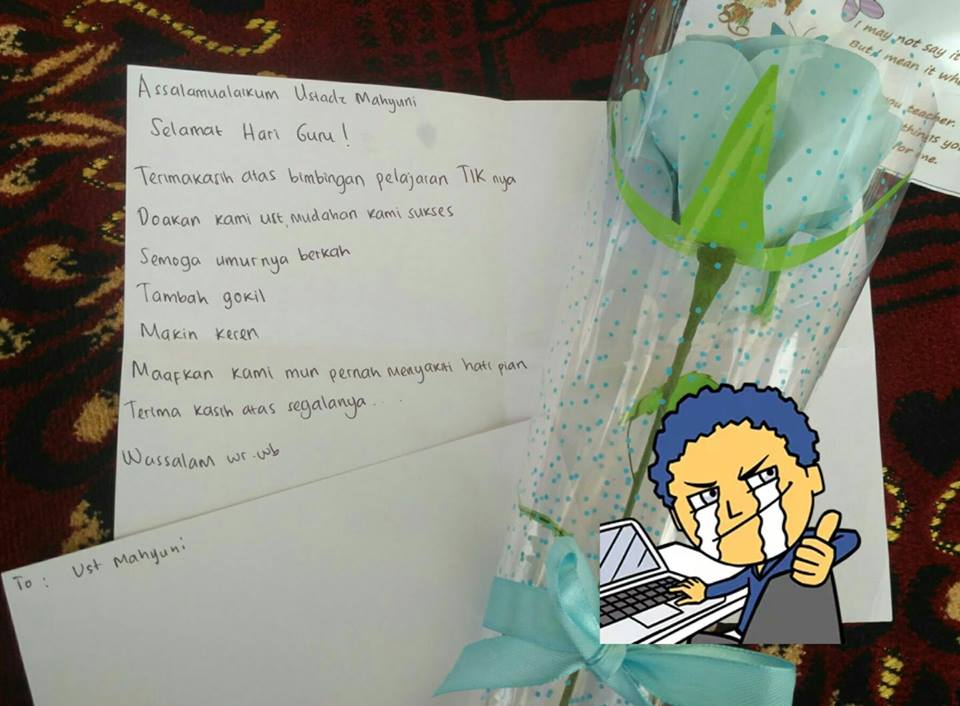 Assalamualaikum Ustadz Mahyuni
Selamat Hari Guru!
Terimakasih atas bimbingan pelajaran TIK nya
Doakan kami ust, mudahan kami sukses
Semoga umurnya berkah
Tambah gokil
Makin keren
Maafkan kami mun pernah menyakiti hati pian
Terima kasih atas segalanya....
Wassalam wr.wb
To : Ust Mahyuni
I may not say it
But I mean it whe
ou teacher.
things you
for me.